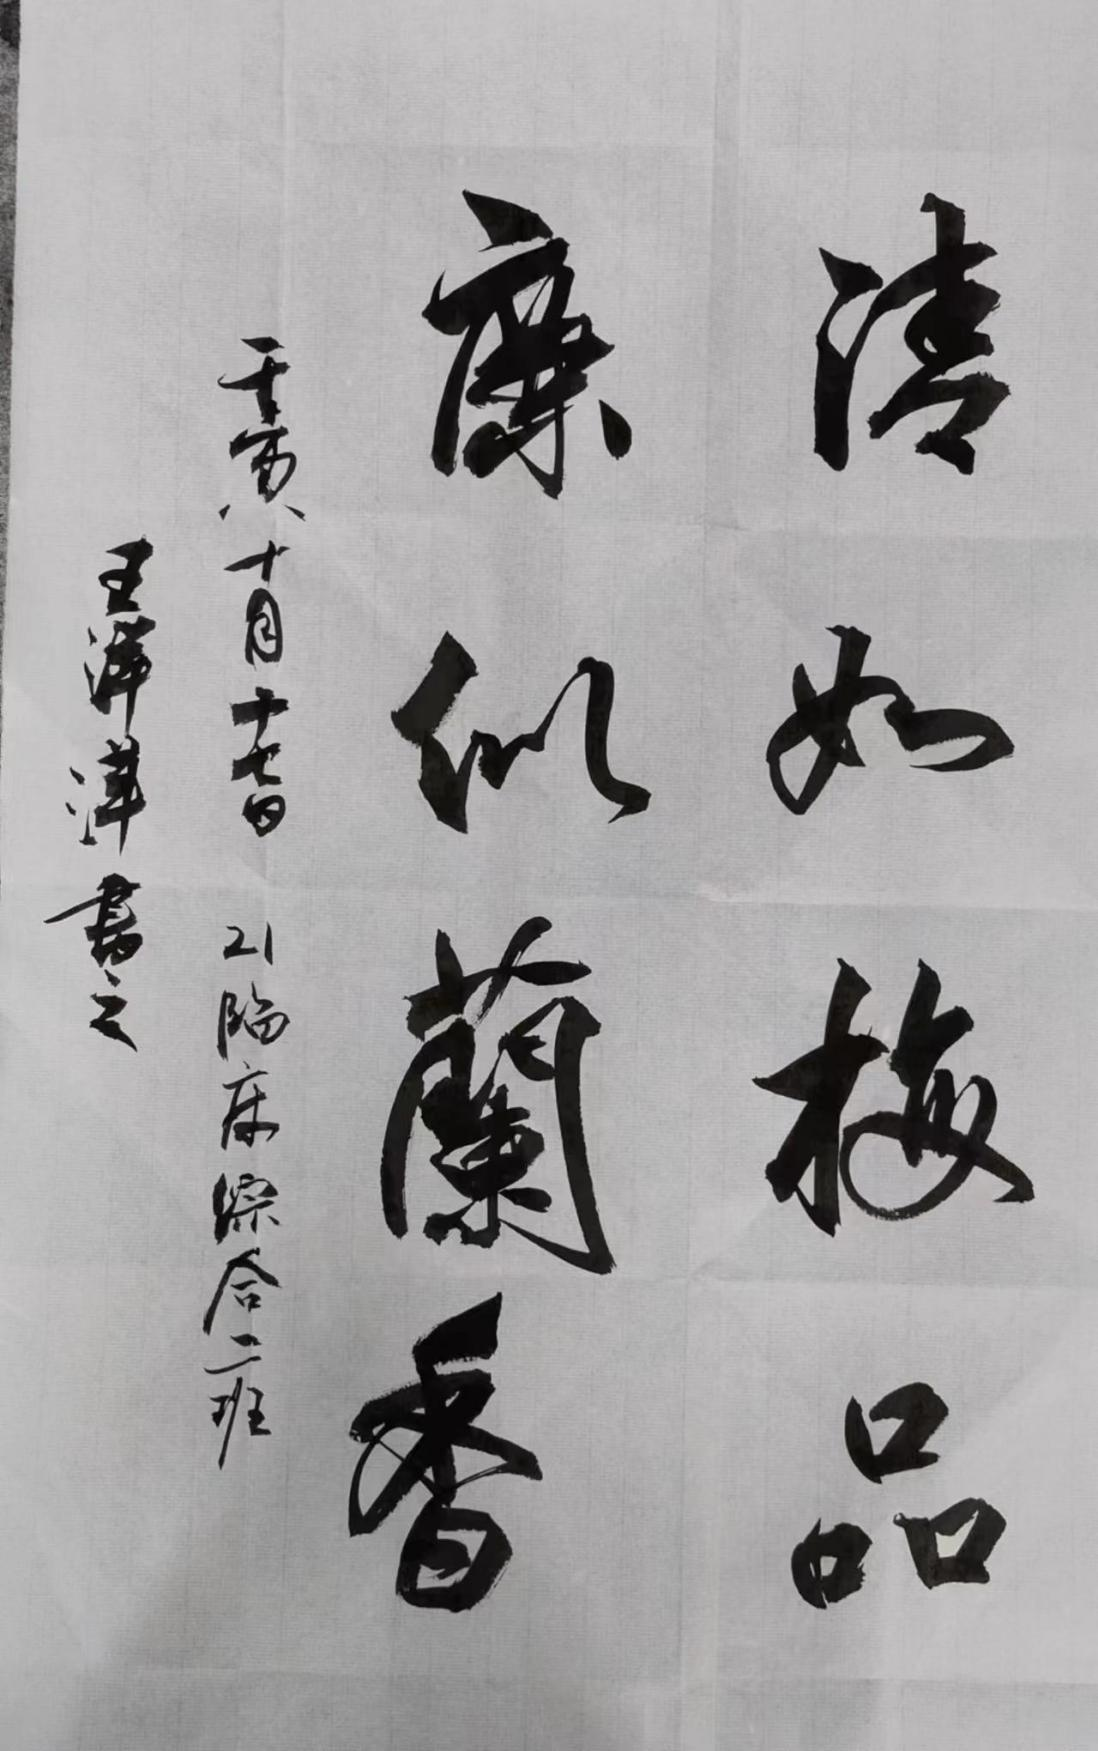 清如梅品
廉似蘭香
壬寅十月十七日 21临床综合二班
王洋洋書之